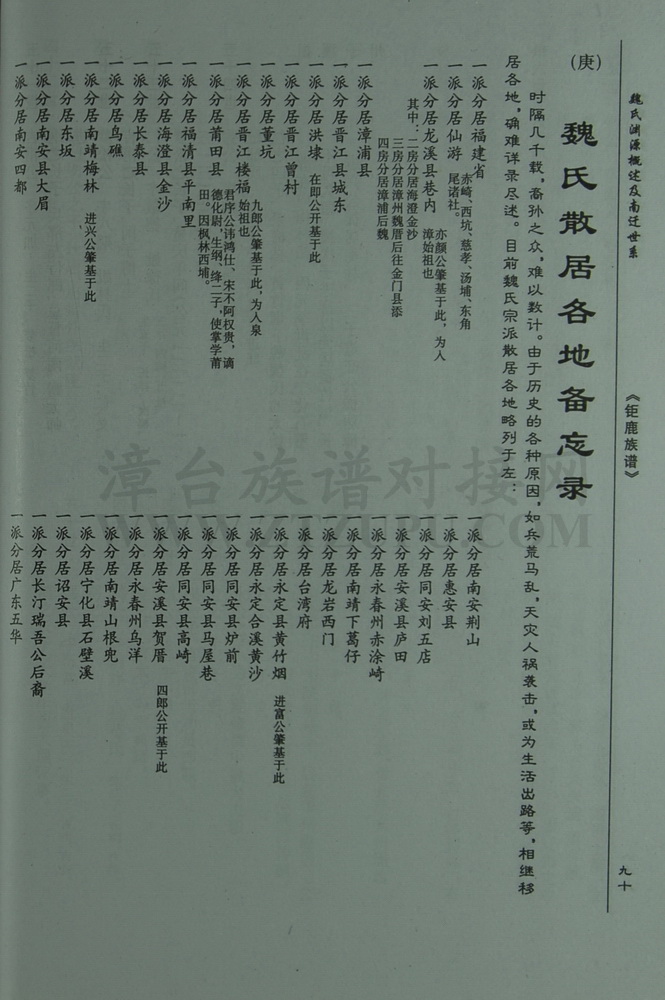 魏氏渊源概述及南迁世系
《钜鹿族谱》
九十
(庚)
魏氏散居各地备忘录
时隔几千载，裔孙之众，难以数计。由于历史的各种原因，如兵荒马乱，天灾人祸袭击，或为生活出路等，相继移
居各地，确难详录尽述。目前魏氏宗派散居各地略列于左：
一派分居福建省
一派分居仙游
赤崎、西坑、慈孝、汤埔、东角
尾诸社。
一派分居龙溪县巷内
亦颜公肇基于此，为人
漳始祖也
其中：二房分居海澄金沙
三房分居漳州魏厝后往金门县添
四房分居漳浦后魏
一派分居漳浦县
一派分居晋江县城东
一派分居洪埭
在即公开基于此
一派分居晋江曾村
一派分居董坑
一派分居晋江楼福
九郎公肇基于此，为人泉
始祖也
一派分居莆田县
君序公讳鸿仕、宋不阿权贵，谪
德化尉，生纲、绛二子，使掌学莆
田。因枫林西埔。
一派分居福清县平南里
一派分居海澄县金沙
一派分居长泰县
一派分居鸟礁
一派分居南靖梅林
进兴公肇基于此
一派分居东坂
一派分居南安县大眉
一派分居南安四都
一派分居南安荆山
一派分居惠安县
一派分居同安刘五店
一派分居安溪县庐田
一派分居永春州赤涂崎
一派分居南靖下葛仔
一派分居龙岩西门
一派分居台湾府
一派分居永定县黄竹烟
进富公肇基于此
一派分居永定合溪黄沙
一派分居同安县炉前
一派分居同安县马屋巷
一派分居同安县高崎
一派分居安溪县贺厝
四郎公开基于此
一派分居永春州乌洋
一派分居南靖山根兜
一派分居宁化县石壁溪
一派分居诏安县
一派分居长汀瑞吾公后裔
一派分居广东五华
漳台族谱对接网